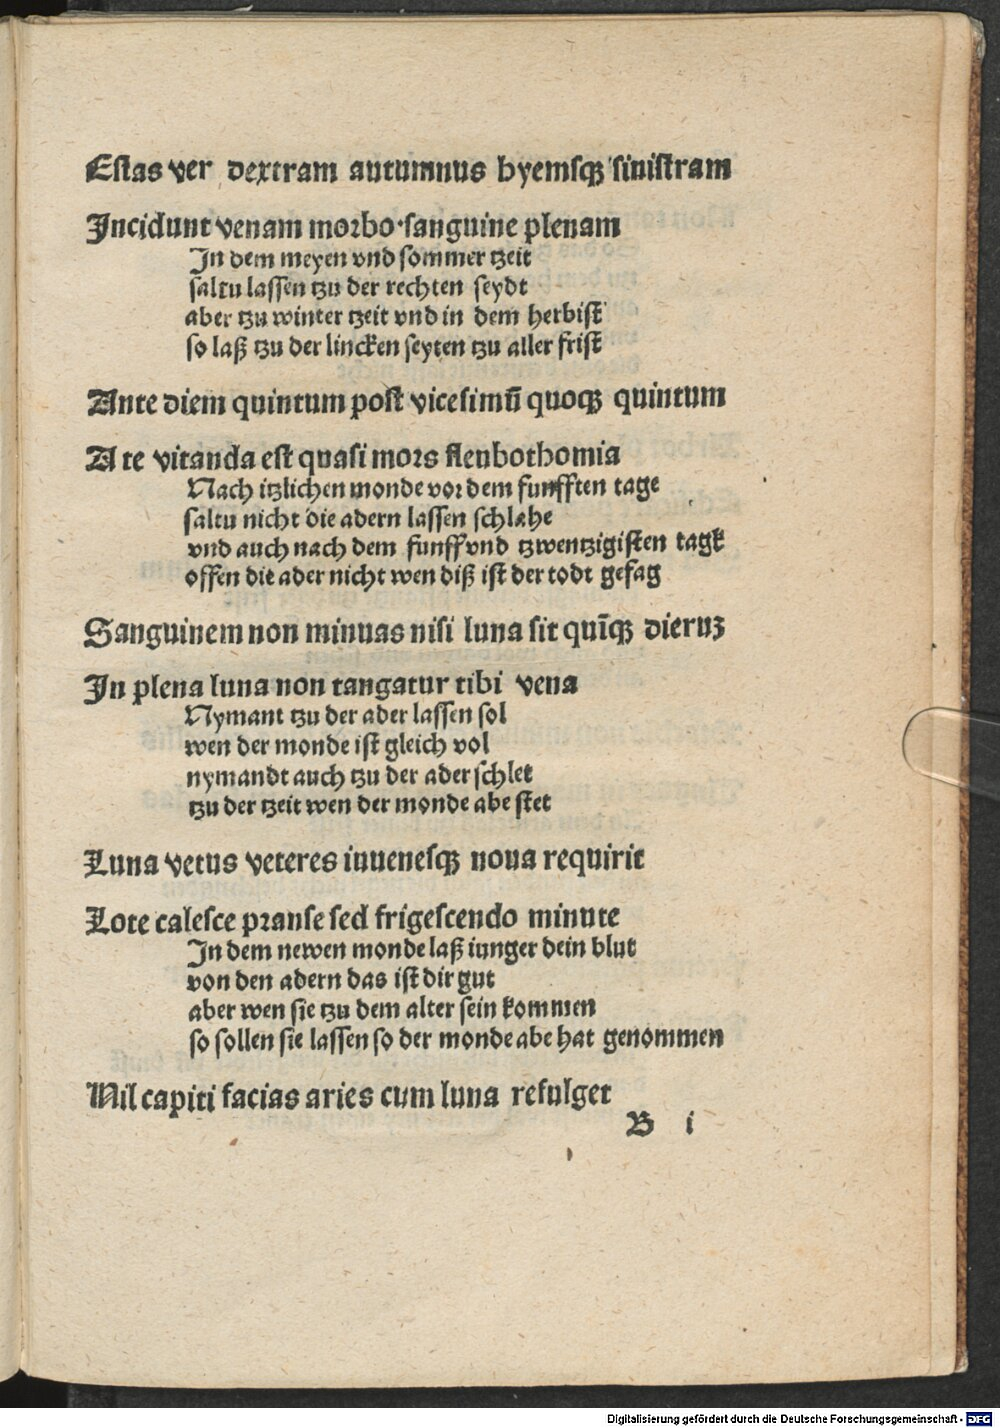 Estas ver dextram autumnus hyemsqꝫ sinistram
Incidunt venam morbo·sanguine plenam
In dem meyen vnd sommer tzeit
saltu lassen tzu der rechten seydt
aber tzu winter tzeit vnd in dem herbist
so laß tzu der lincken seyten tzu aller frist
Ante diem quintum post vicesimū quoqꝫ quintum
A te vitanda est quasi mors flenbothomia
Nach itzlichen monde vor dem funfften tage
saltu nicht die adern lassen schlahe
vnd auch nach dem funff vnd tzwentzigisten tagk
offen die ader nicht wen diß ist der todt gesag
Sanguinem non minuas nisi luna sit quīqꝫ dieruꝫ
In plena luna non tangatur tibi vena
Nymant tzu der ader lassen sol
wen der monde ist gleich vol
nymandt auch tzu der ader schlet
tzu der tzeit wen der monde abe stet
Luna vetus veteres iuuenesqꝫ noua requirit
Lote calesce pranse sed frigescendo minute
In dem newen monde laß iunger dein blut
von den adern das ist dir gut
aber wen sie tzu dem alter sein kommen
so sollen sie lassen so der monde abe hat genommen
Nil capiti facias aries cum luna refulget
B i
Digitalisierung gefördert durch die Deutsche Forschungsgemeinschaft - DFG